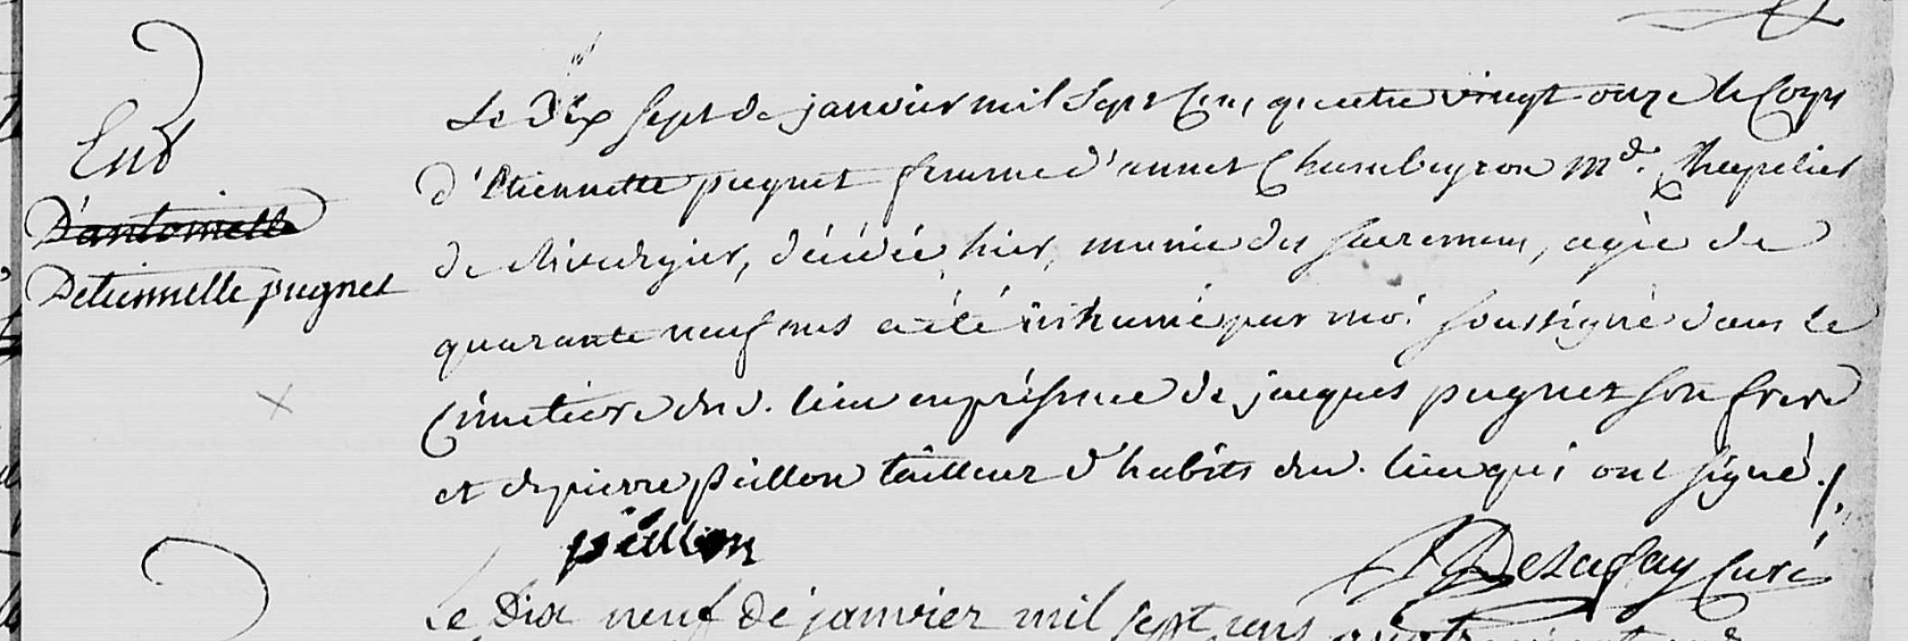 Ent
D'antoinette
D'etiennette pugnet
Le Dix sept de janvier mil sept Cent quatre vingt onze le Corps
d'Etiennette pugnet femme d'annet Chambeyron md. Chapelier
de Riverie, décédée hier, munie des sacremens, agée de
quarante neuf ans a été inhumé par moi soussigné dans le
Cimetiere dud. lieu en présence de jacques pugnet son frere
et de pierre péillon tailleur d'habits dud. lieu qui ont signé./.
péillon
Delafay Curé
Le Dix neuf de janvier mil sept cens quatre vingt